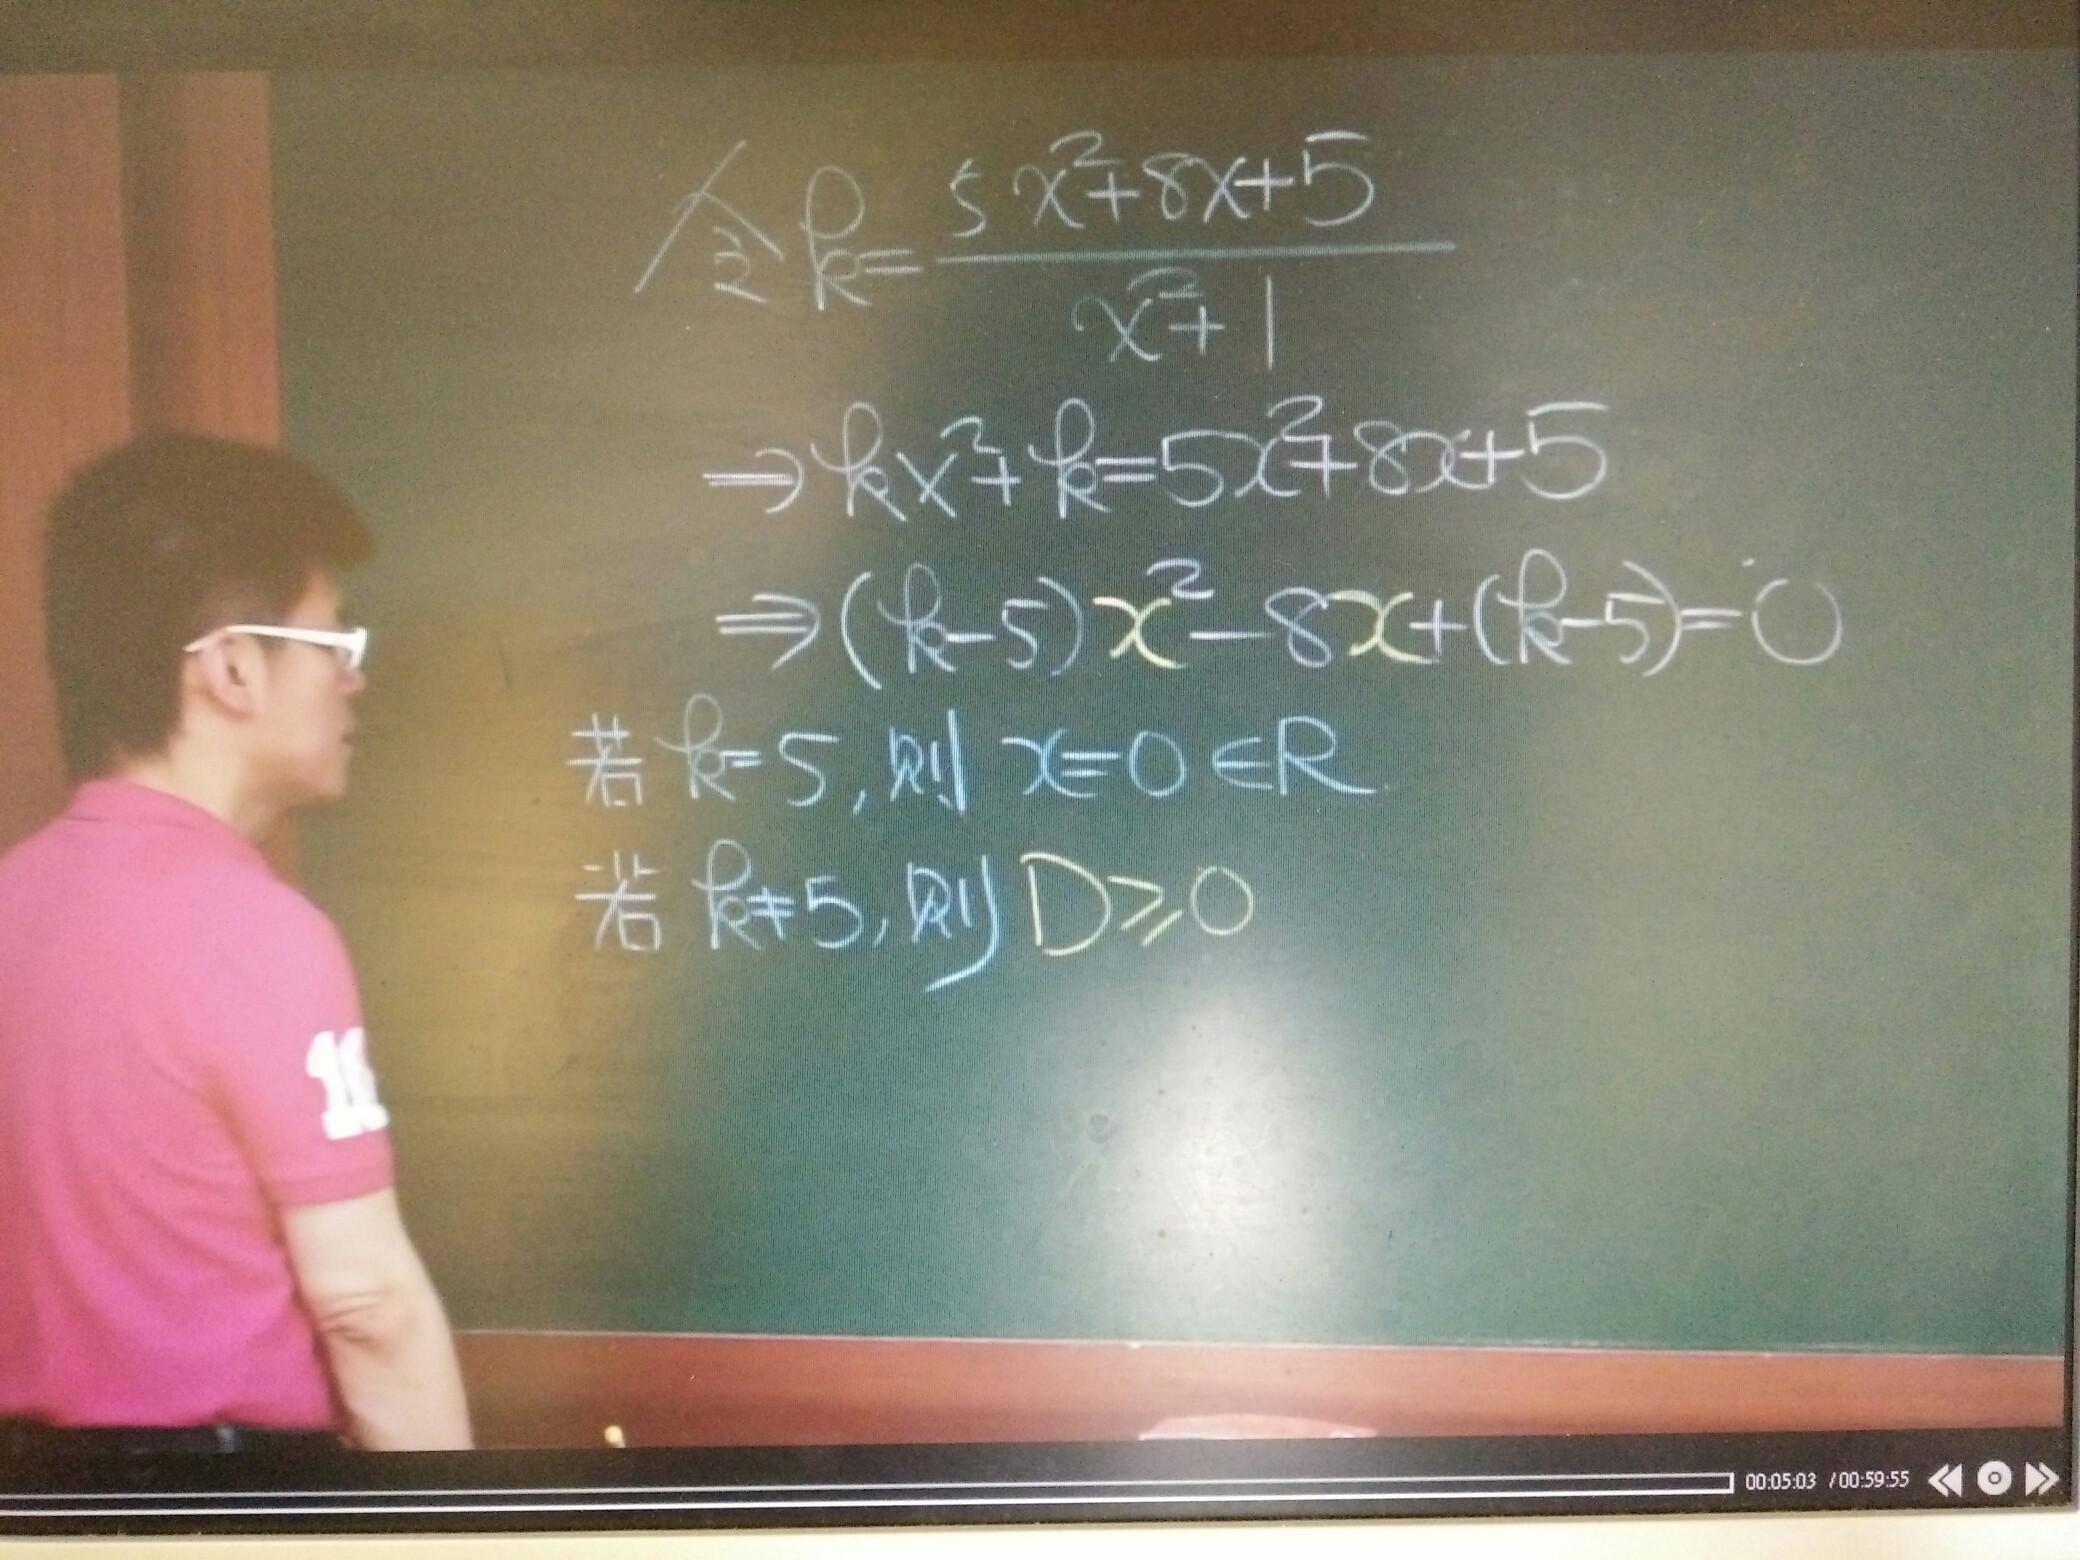 令 k = (5x²+8x+5)/(x²+1)
⇒ kx²+k=5x²+8x+5
⇒ (k-5)x²-8x+(k-5)=0
若 k=5, 则 x=0 ∈R
若 k≠5, 则 D≥0
00:05:03 / 00:59:55